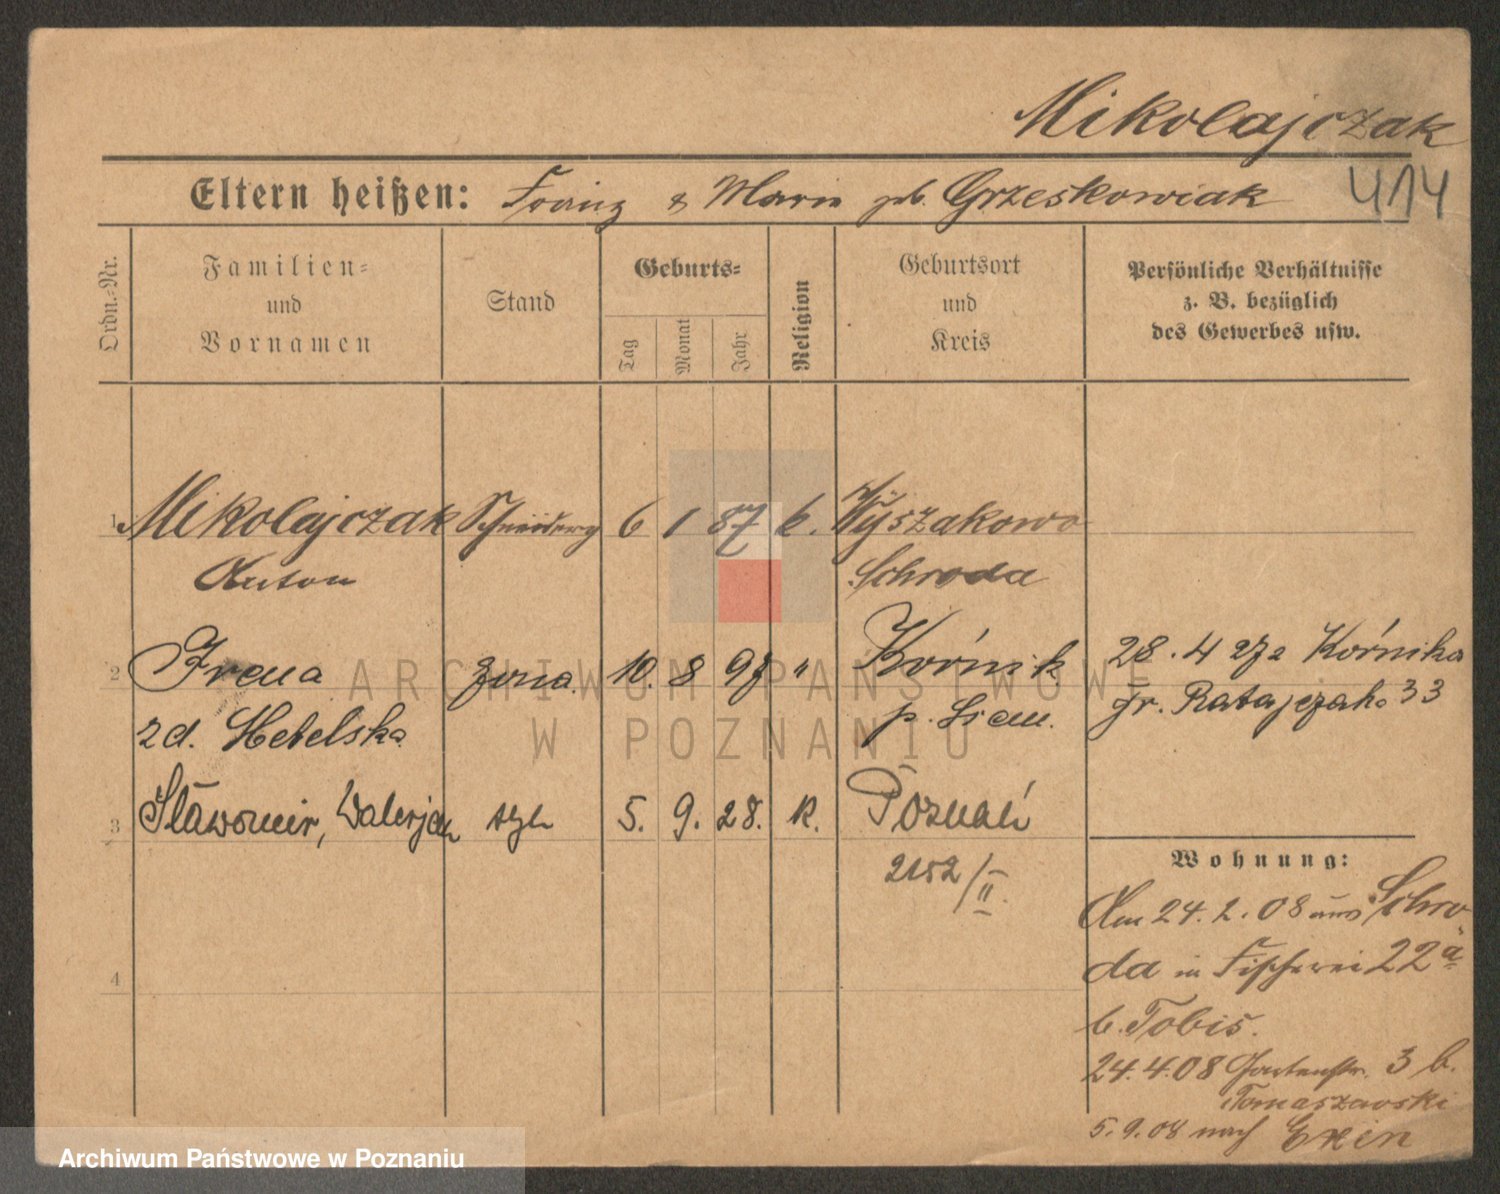 Mikolajczak
Eltern heißen: Franz & Marie geb. Grzeskowiak 414
Ordn.-Nr.
Familien-
und
Vornamen
Stand
Geburts-
Tag
Monat
Jahr
Religion
Geburtsort
und
Kreis
Persönliche Verhältnisse
z. B. bezüglich
des Gewerbes usw.
1 Mikolajczak Schneiderg 6 1 87 k. Wyszakowo
Anton Schroda
2 Irena żona 10. 8 97 " Kórnik 28. 4 27 z Kórnika
zd. Hebelska p. Srem. gr. Ratajczaka 33
3 Sławomir, Waleryan syn 5. 9. 28. k. Poznań
2152/II.
4
Wohnung:
Am 24. 2. 08 aus Schro-
da in Fischerei 22a
b. Tobis.
24. 4. 08 Gartenstr. 3 b.
Tomaszewski
5. 9. 08 nach Exin
ARCHIWUM PAŃSTWOWE
W POZNANIU
Archiwum Państwowe w Poznaniu